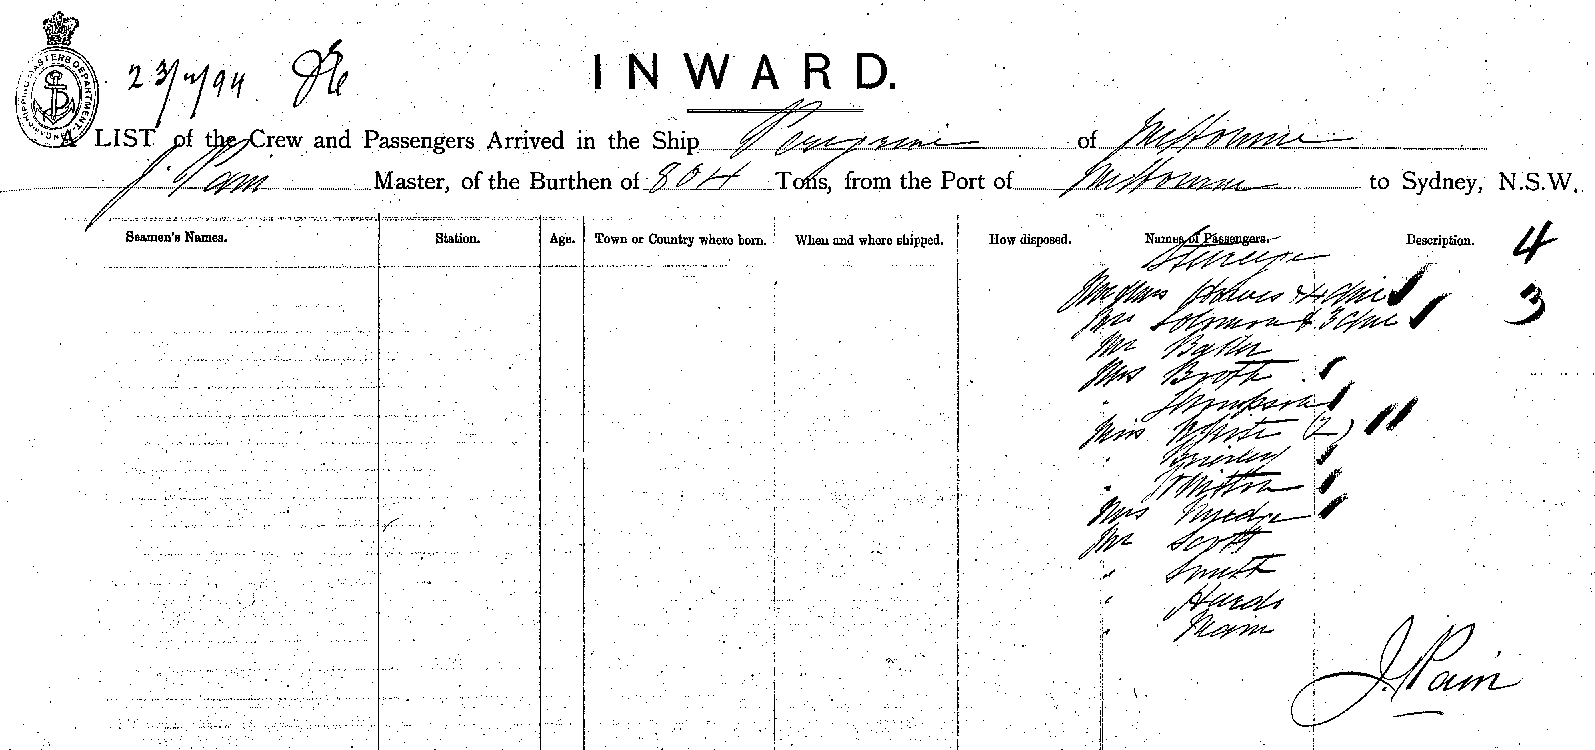 SHIPPING MASTERS DEPARTMENT
23/7/94
INWARD.
A LIST of the Crew and Passengers Arrived in the Ship Peregrine of Melbourne
J. Pain Master, of the Burthen of 804 Tons, from the Port of Melbourne to Sydney, N.S.W.
Seamen's Names. Station. Age. Town or Country where born. When and where shipped. How disposed. Names of Passengers. Description.
Steerage 4
Mr & Mrs Hawes & 4 chil 3
Mrs Solomon & 3 chil
Mr Baker
Mrs Broth
" Thompson
Miss White (2)
" Brierley
" Whitton
Mrs
Mr Scott
" Smith
" Hurds
" Main
J. Pain